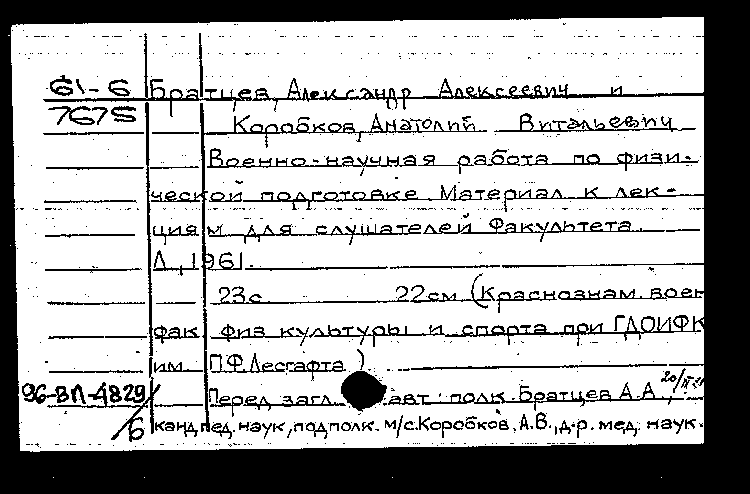 61-6 Братцев, Александр Алексеевич и
7675 Коробков, Анатолий Витальевич
Военно-научная работа по физи-
ческой подготовке. Материал к лек-
циям для слушателей Факультета.
Л., 1961.
23с. 22см (Краснознам. воен
фак физ культуры и спорта при ГДОИФК
им. П.Ф.Лесгафта)
96-ВП-4829/Б Перед загл. авт: полк. Братцев А.А.,
канд пед. наук, подполк. м/с.Коробков, А.В., д-р. мед. наук.